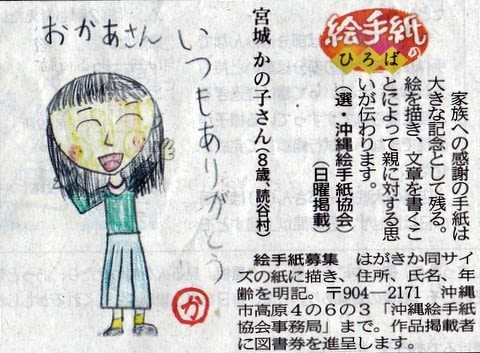 絵手紙の
ひろば
家族への感謝の手紙は
大きな記念として残る。
絵を描き、文章を書くこ
とによって親に対する思
いが伝わります。
（選・沖縄絵手紙協会）
（日曜掲載）
宮城 かの子さん（８歳、読谷村）
いつもありがとう
おかあさん
か
絵手紙募集　はがきか同サイ
ズの紙に描き、住所、氏名、年
齢を明記。〒904―2171　沖縄
市高原４の６の３「沖縄絵手紙
協会事務局」まで。作品掲載者
に図書券を進呈します。